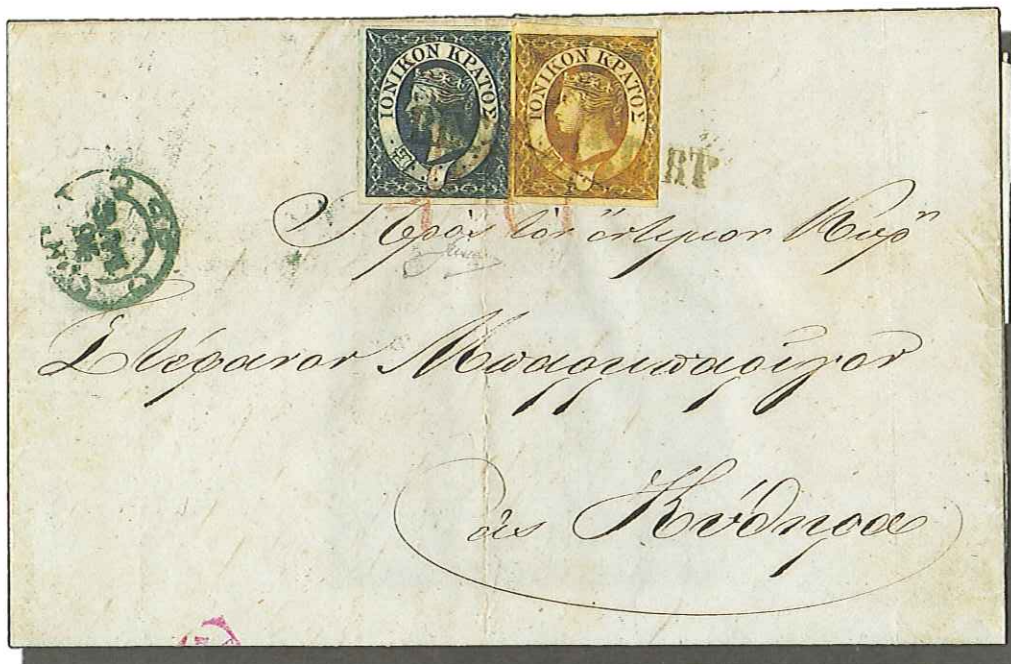 ΙΟΝΙΚΟΝ ΚΡΑΤΟΣ ΙΟΝΙΚΟΝ ΚΡΑΤΟΣ
Πρὸς τὸν ἔντιμον Κύρ^ν
Στέφανον Μπαρμπαρίγον
εἰς Κύθηρα